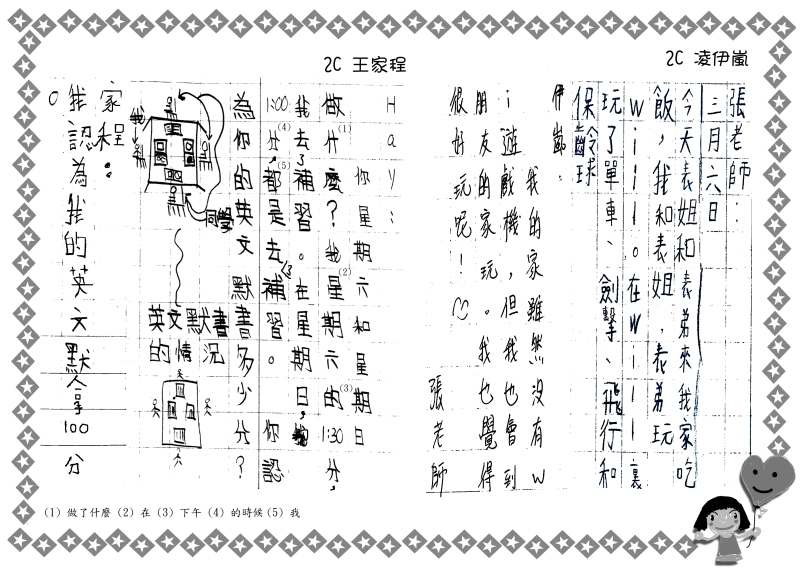 2C 凌伊嵐
張老師：
三月六日
今天表姐和表弟來我家吃
飯，我和表姐，表弟玩
Wiiii。在Wiiii裏
玩了單車、劍擊、飛行和
保齡球
伊嵐：
我的家雖然沒有W
i遊戲機，但我也會到
朋友的家玩。我也覺得
很好玩呢！
張老師
2C 王家程
Hayi：
你星期六和星期日
做什麼？我(1)星(2)期六的(3)1:30分，
我去了補習。在星期日，我
1:00分(4)，都(5)是去補習。你認
為你的英文默書多少分？
我
同學
英文默書
的情況
家程：
我認為我的英文默會拿100分。
(1) 做了什麼 (2) 在 (3) 下午 (4) 的時候 (5) 我